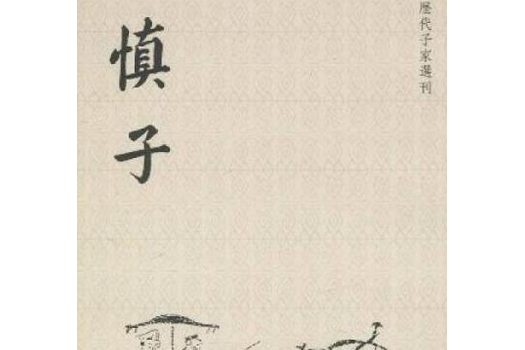 歷代子家選刊
慎子